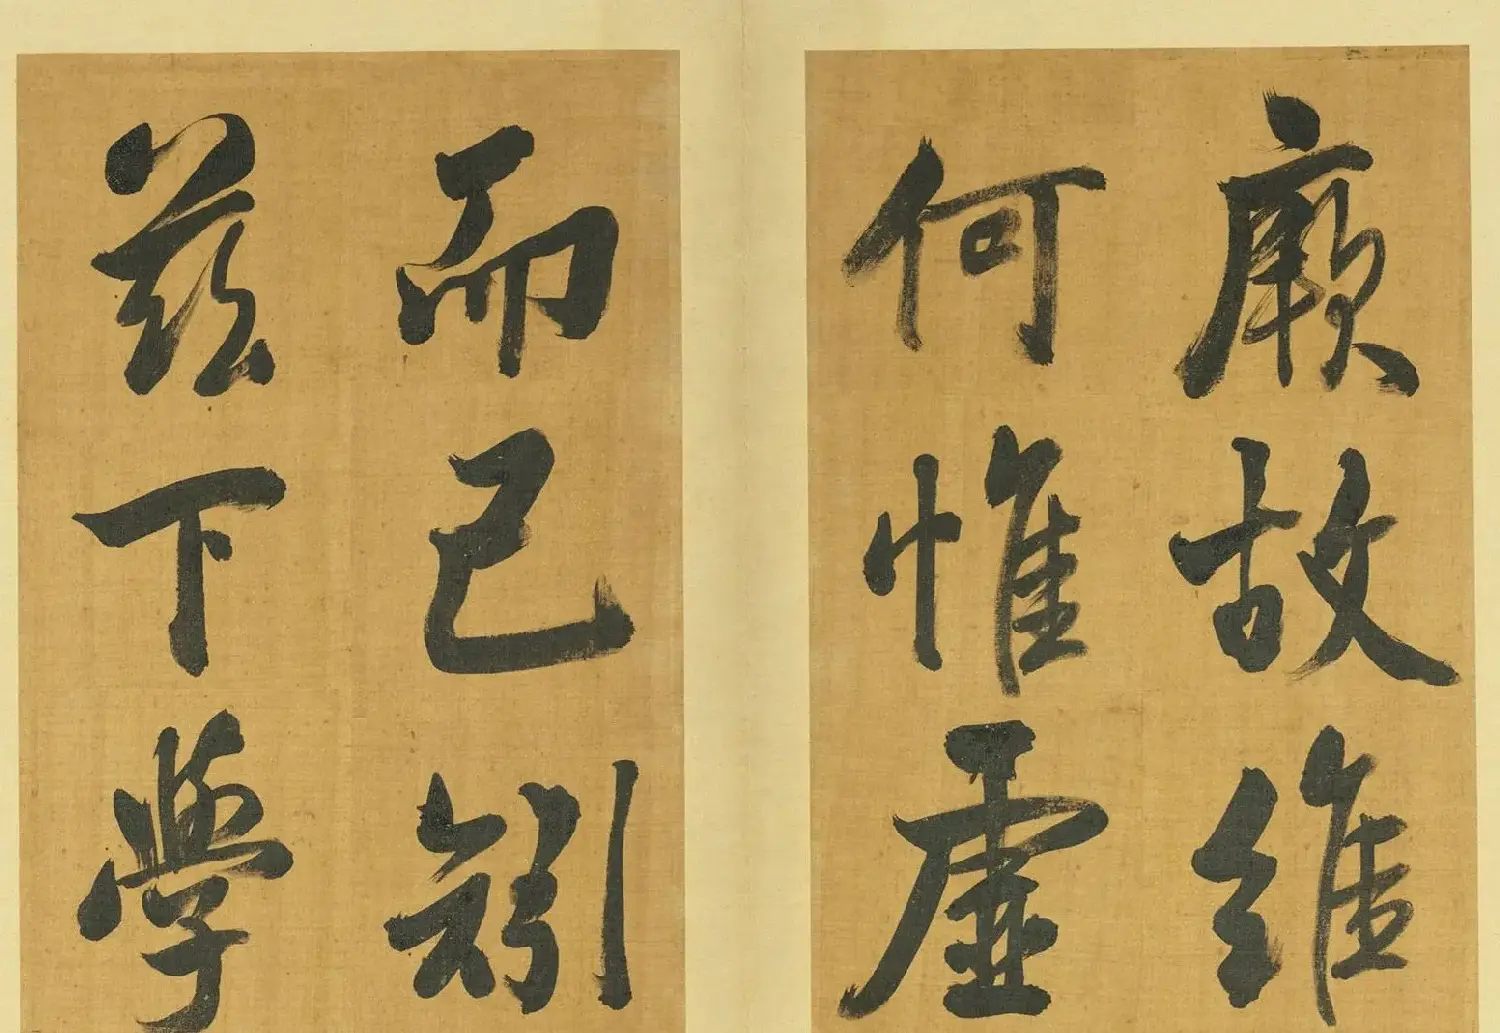 厥故維
何惟虛
而已矧
茲下學